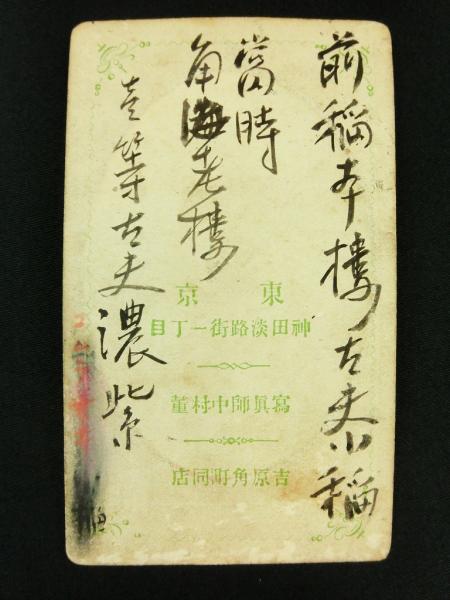 前稲本樓太夫小稲
當時
角海老樓
壱等太夫濃紫
東京
神田淡路街一丁目
寫眞師中村董
吉原角町同店